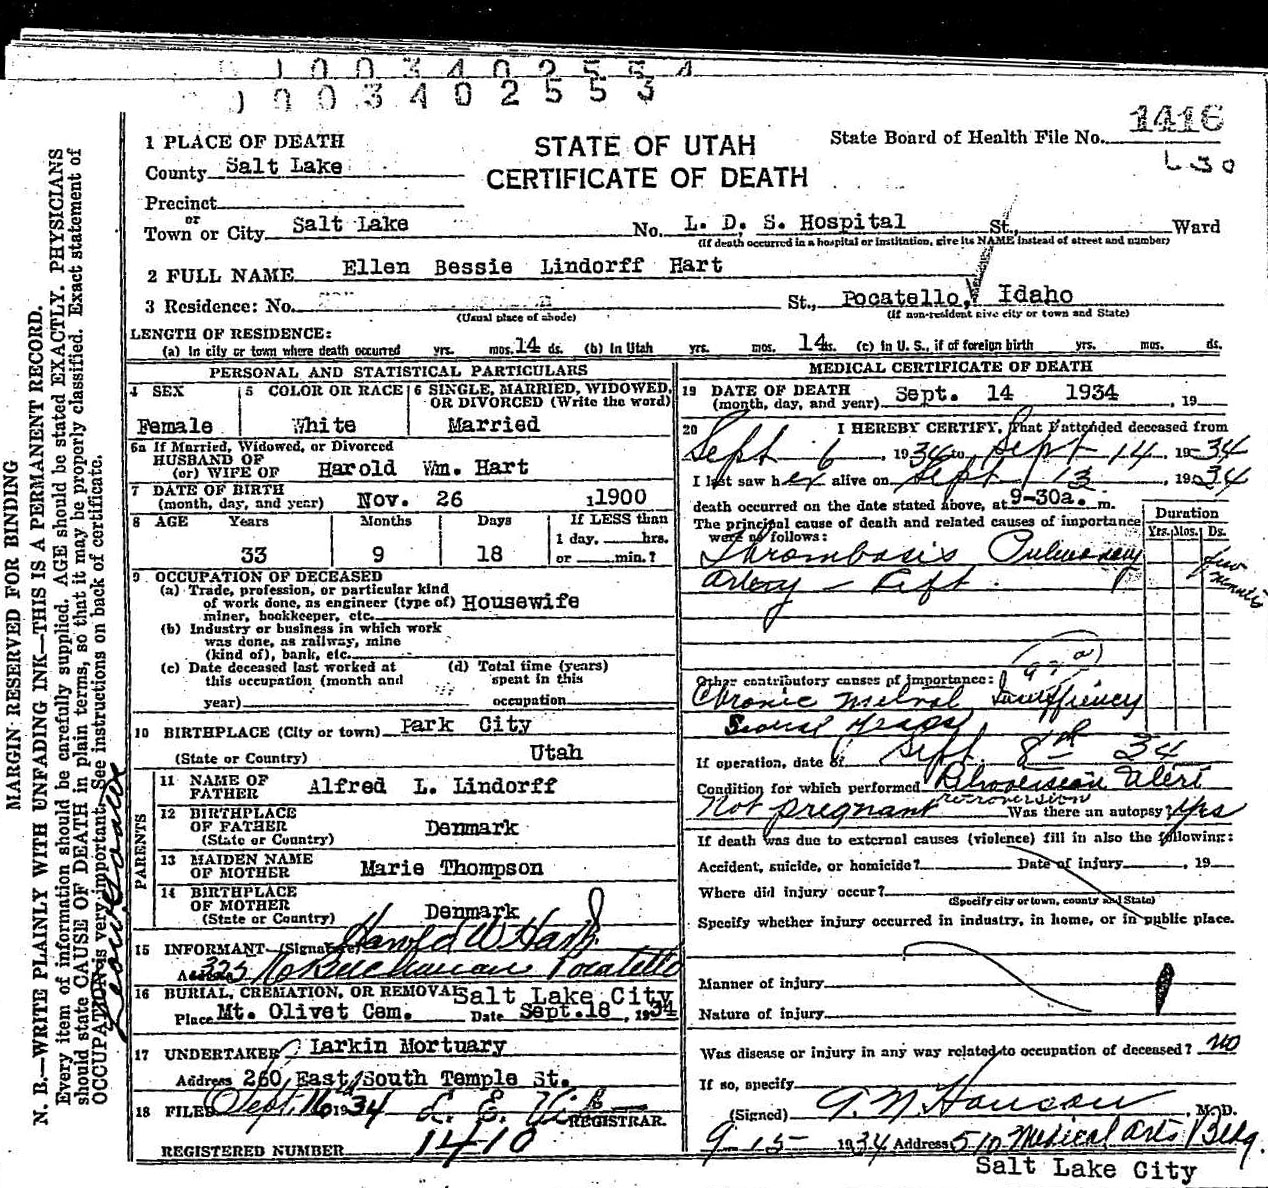 1003402553
State Board of Health File No. 1416
STATE OF UTAH
CERTIFICATE OF DEATH
1 PLACE OF DEATH
County Salt Lake
Precinct
or
Town or City Salt Lake No. L. D. S. Hospital St., Ward
(If death occurred in a hospital or institution, give its NAME instead of street and number)
2 FULL NAME Ellen Bessie Lindorff Hart
3 Residence: No. St., Pocatello, Idaho
(Usual place of abode) (If non-resident give city or town and State)
LENGTH OF RESIDENCE:
(a) In city or town where death occurred yrs. mos. 14 ds. (b) In Utah yrs. mos. 14 ds. (c) In U. S., if of foreign birth yrs. mos. ds.
PERSONAL AND STATISTICAL PARTICULARS
4 SEX
Female
5 COLOR OR RACE
White
6 SINGLE, MARRIED, WIDOWED, OR DIVORCED (Write the word)
Married
6a If Married, Widowed, or Divorced
HUSBAND OF
(or) WIFE OF Harold Wm. Hart
7 DATE OF BIRTH
(month, day, and year) Nov. 26 1900
8 AGE Years Months Days If LESS than
1 day, hrs.
33 9 18 or min.?
9 OCCUPATION OF DECEASED
(a) Trade, profession, or particular kind
of work done, as engineer (type of) Housewife
miner, bookkeeper, etc.
(b) Industry or business in which work
was done, as railway, mine
(kind of), bank, etc.
(c) Date deceased last worked at (d) Total time (years)
this occupation (month and spent in this
year) occupation
10 BIRTHPLACE (City or town) Park City
(State or Country) Utah
PARENTS
11 NAME OF
FATHER Alfred L. Lindorff
12 BIRTHPLACE
OF FATHER Denmark
(State or Country)
13 MAIDEN NAME
OF MOTHER Marie Thompson
14 BIRTHPLACE
OF MOTHER Denmark
(State or Country)
15 INFORMANT (Signature) Harold W Hart
Address 325 No Buchanan Pocatello
16 BURIAL, CREMATION, OR REMOVAL Salt Lake City
Place Mt. Olivet Cem. Date Sept.18, 1934
17 UNDERTAKER Larkin Mortuary
Address 260 East South Temple St.
18 FILED Sept. 16 1934
REGISTRAR.
REGISTERED NUMBER 1410
MEDICAL CERTIFICATE OF DEATH
19 DATE OF DEATH
(month, day, and year) Sept. 14 1934, 19
20 I HEREBY CERTIFY, That I attended deceased from
Sept 6, 1934 to Sept 14, 1934
I last saw her alive on Sept 13, 1934
death occurred on the date stated above, at 9-30a. m.
The principal cause of death and related causes of importance
were as follows:
Duration
Yrs. Mos. Ds.
Thrombosis Pulmonary few minutes
artery - Left
Other contributory causes of importance:
Chronic Mitral Insufficiency
Several years
If operation, date of Sept 8th 34
Condition for which performed Retroversion Uteri
retroversion
Not pregnant Was there an autopsy? Yes
If death was due to external causes (violence) fill in also the following:
Accident, suicide, or homicide? Date of injury, 19
Where did injury occur?
(Specify city or town, county and State)
Specify whether injury occurred in industry, in home, or in public place.
Manner of injury
Nature of injury
Was disease or injury in any way related to occupation of deceased? No
If so, specify
(Signed) Hanson, M. D.
9-15-1934 Address 510 Medical Arts Bldg.
Salt Lake City
MARGIN RESERVED FOR BINDING
N. B.—WRITE PLAINLY WITH UNFADING INK—THIS IS A PERMANENT RECORD.
Every item of information should be carefully supplied. AGE should be stated EXACTLY. PHYSICIANS
should state CAUSE OF DEATH in plain terms, so that it may be properly classified. Exact statement of
OCCUPATION is very important. See instructions on back of certificate.